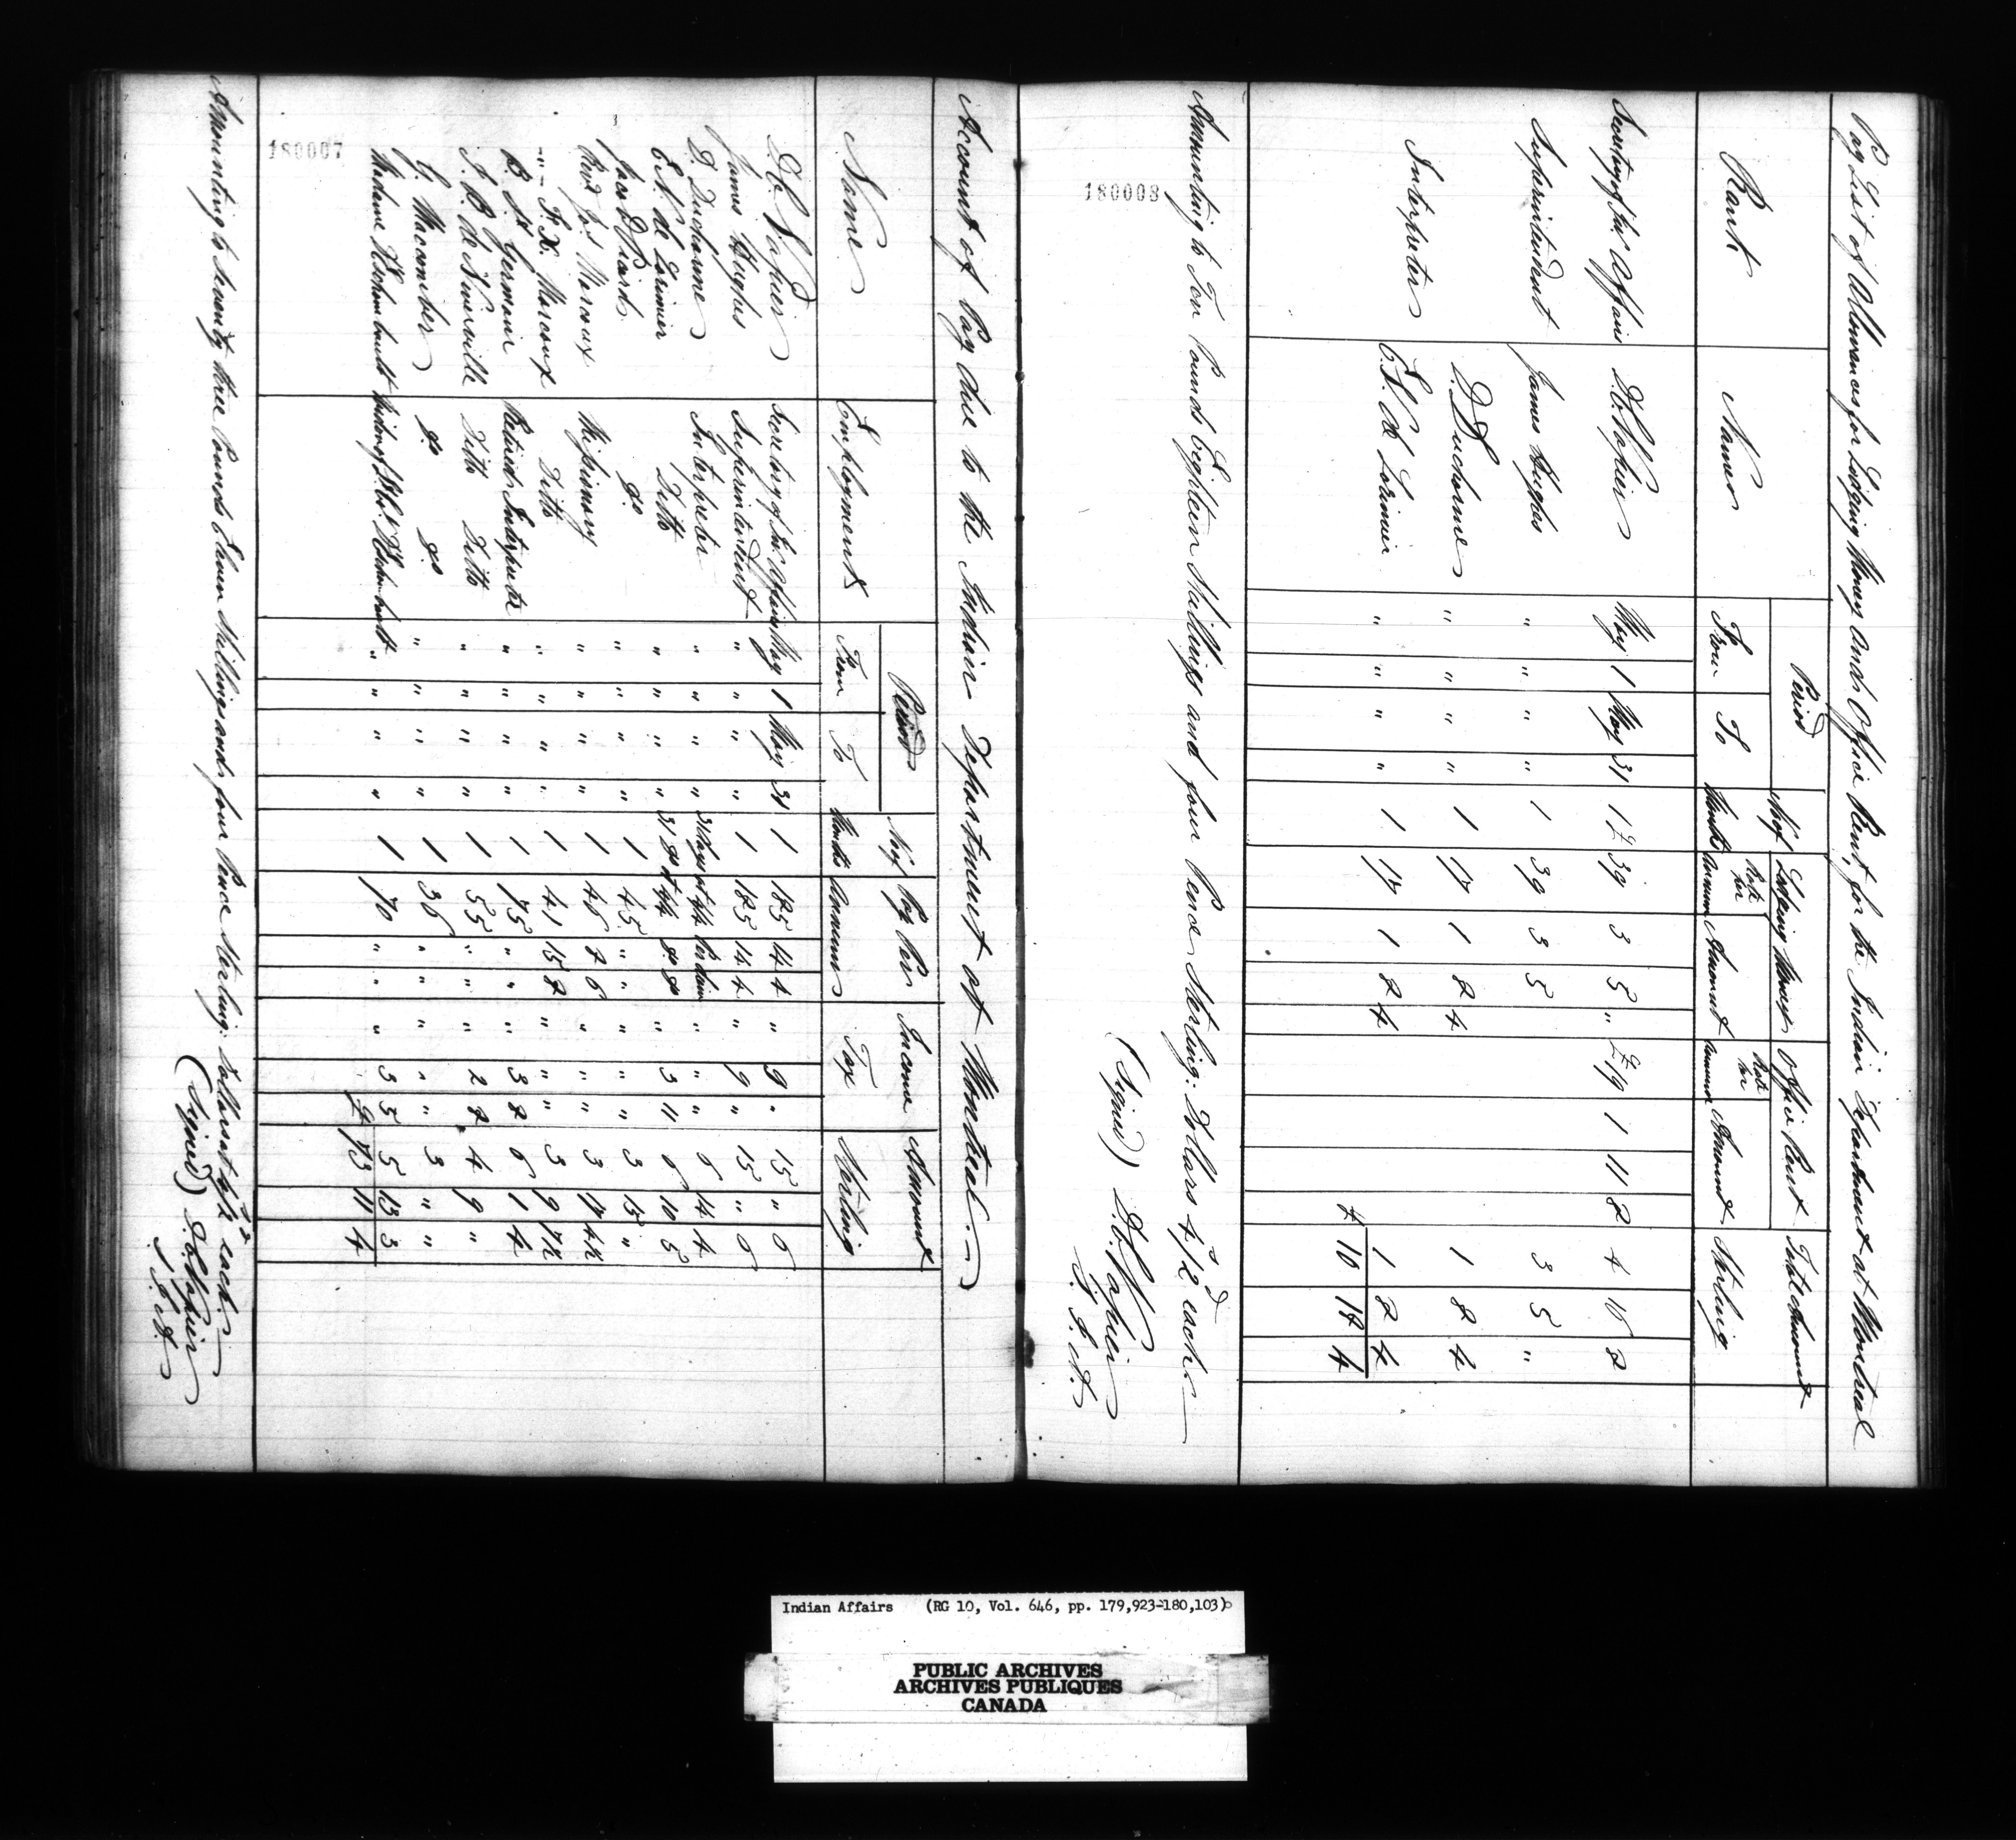 Pay List of Allowances for Lodging Money and Office Rent, for the Indian Department at Montreal
Rank Names Period No. of Months Lodging Money Office Rent Total Amount Sterling
From To Rate per Annum Amount Rate per Annum Amount
Secretary of Ind. Affairs D.C. Napier May 1 May 31 1 £39 3 5 " £19 1 11 8 4 16 8
Superintendent James Hughes " " " " 1 39 3 5 3 5 "
Interpreter D. Ducharme " " " " 1 17 1 8 4 1 8 4
E.N. de Lorimier " " " " 1 17 1 8 4 1 8 4
£ 10 18 4
Amounting to Ten Pounds Eighteen Shillings and four Pence Sterling. Dollars 4/2d each
(Signed) D.C. Napier
S.I.A.
180008
Account of Pay due to the Indian Department at Montreal.
Name Employment Period No. of Months Pay Per Annum Income Tax Amount Sterling
From To
D.C. Napier Secretary of Ind. Affairs May 1 May 31 1 185 14 4 " 9 " 15 " 6
James Hughes Superintendent " " " " 1 185 14 4 " 9 " 15 " 6
D. Ducharme Interpreter " " " " 31 Days at 4/4 Per diem " " " 6 14 4
E.N. de Lorimier Ditto " " " " 31 do at 4/4 do do " 3 11 6 10 5
Jacob Picard do " " " " 1 45 " " " " " 3 15 "
Revd. Jos Marcoux Missionary " " " " 1 46 7 6 " " " 3 17 4½
" F.X. Marcoux Ditto " " " " 1 41 15 8 " " " 3 9 7½
B. St Germain Retired Interpreter " " " " 1 75 " " " 3 8 6 1 4
A.B. de Niverville Ditto Ditto " " " " 1 55 " " " 2 8 4 9 "
G. Maccomber do do " " " " 1 36 " " " " " 3 " "
Madame D'Eschambault Widow of D'Eschambault " " " " 1 70 " " " 3 5 5 13 3
£ 73 11 4
Amounting to Seventy three Pounds Eleven Shillings and four Pence Sterling. Dollars at 4/2d each.
(Signed) D.C. Napier
S.I.A.
180007
Indian Affairs (RG 10, Vol. 646, pp. 179,923-180,103)
PUBLIC ARCHIVES
ARCHIVES PUBLIQUES
CANADA